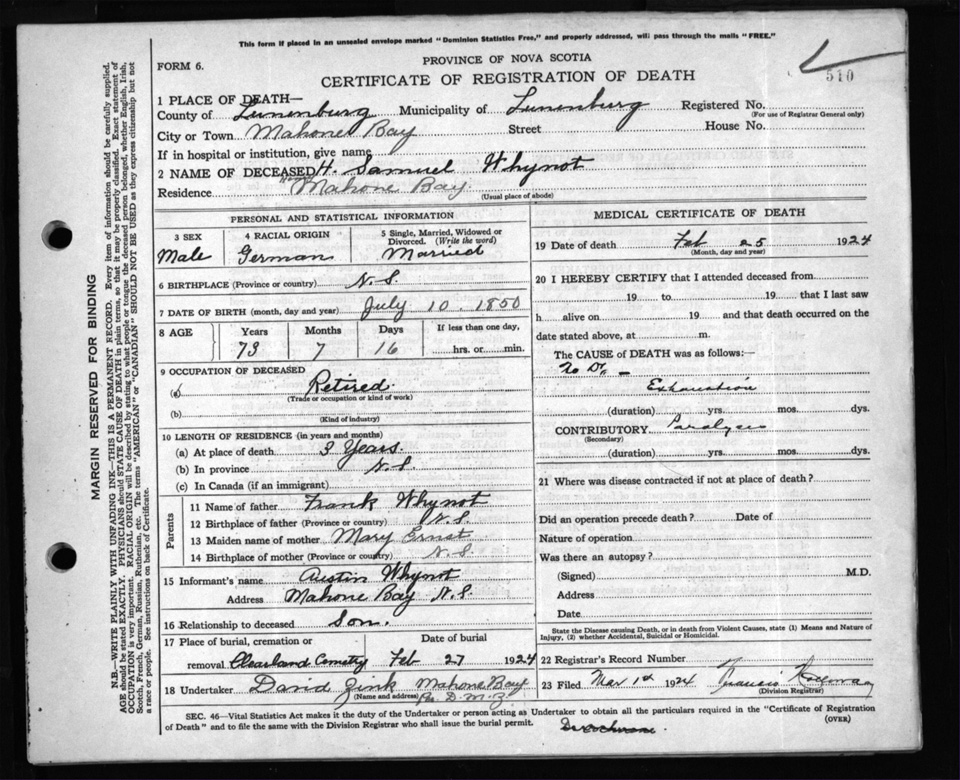 This form if placed in an unsealed envelope marked "Dominion Statistics Free," and properly addressed, will pass through the mails "FREE."
PROVINCE OF NOVA SCOTIA
FORM 6.
CERTIFICATE OF REGISTRATION OF DEATH
510
1 PLACE OF DEATH—
County of Lunenburg Municipality of Lunenburg Registered No.
(For use of Registrar General only)
City or Town Mahone Bay Street House No.
If in hospital or institution, give name
2 NAME OF DECEASED H. Samuel Whynot
Residence Mahone Bay
(Usual place of abode)
PERSONAL AND STATISTICAL INFORMATION
3 SEX 4 RACIAL ORIGIN 5 Single, Married, Widowed or Divorced. (Write the word)
Male German Married
6 BIRTHPLACE (Province or country) N.S.
7 DATE OF BIRTH (month, day and year) July 10. 1850
8 AGE Years Months Days If less than one day,
73 7 16 hrs. or min.
9 OCCUPATION OF DECEASED
(a) Retired.
(Trade or occupation or kind of work)
(b)
(Kind of industry)
10 LENGTH OF RESIDENCE (in years and months)
(a) At place of death 3 Years.
(b) In province N.S
(c) In Canada (if an immigrant)
Parents
11 Name of father Frank Whynot
12 Birthplace of father (Province or country) N.S.
13 Maiden name of mother Mary Ernst
14 Birthplace of mother (Province or country) N.S
15 Informant's name Austin Whynot
Address Mahone Bay N.S.
16 Relationship to deceased Son.
17 Place of burial, cremation or Date of burial
removal Clearland Cemetry Feb 27 1924
18 Undertaker David Zink Mahone Bay
(Name and address) Per D.M.Z.
MEDICAL CERTIFICATE OF DEATH
19 Date of death Feb 25 1924
(Month, day and year)
20 I HEREBY CERTIFY that I attended deceased from
19 to 19 that I last saw
h alive on 19 and that death occurred on the
date stated above, at m.
The CAUSE of DEATH was as follows:—
No Dr. –
Exhaustion
(duration) yrs. mos. dys.
CONTRIBUTORY Paralysis
(Secondary)
(duration) yrs. mos. dys.
21 Where was disease contracted if not at place of death?
Did an operation precede death? Date of
Nature of operation
Was there an autopsy?
(Signed) M.D.
Address
Date
State the Disease causing Death, or in death from Violent Causes, state (1) Means and Nature of
Injury, (2) whether Accidental, Suicidal or Homicidal.
22 Registrar's Record Number
23 Filed Mar 1st 1924 Francis
(Division Registrar)
SEC. 46—Vital Statistics Act makes it the duty of the Undertaker or person acting as Undertaker to obtain all the particulars required in the "Certificate of Registration
of Death" and to file the same with the Division Registrar who shall issue the burial permit. (OVER)
MARGIN RESERVED FOR BINDING
N.B.—WRITE PLAINLY WITH UNFADING INK—THIS IS A PERMANENT RECORD. Every item of information should be carefully supplied.
AGE should be stated EXACTLY. PHYSICIANS should STATE CAUSE OF DEATH in plain terms, so that it may be properly classified. Exact statement of
OCCUPATION is very important. RACIAL ORIGIN will be described by stating to what people or tongue the deceased person belonged, whether English, Irish,
Scotch, French, German, Russian, Ruthenian, etc. The terms "AMERICAN" or "CANADIAN" SHOULD NOT BE USED as they express citizenship but not
a race or people. See instructions on back of Certificate.